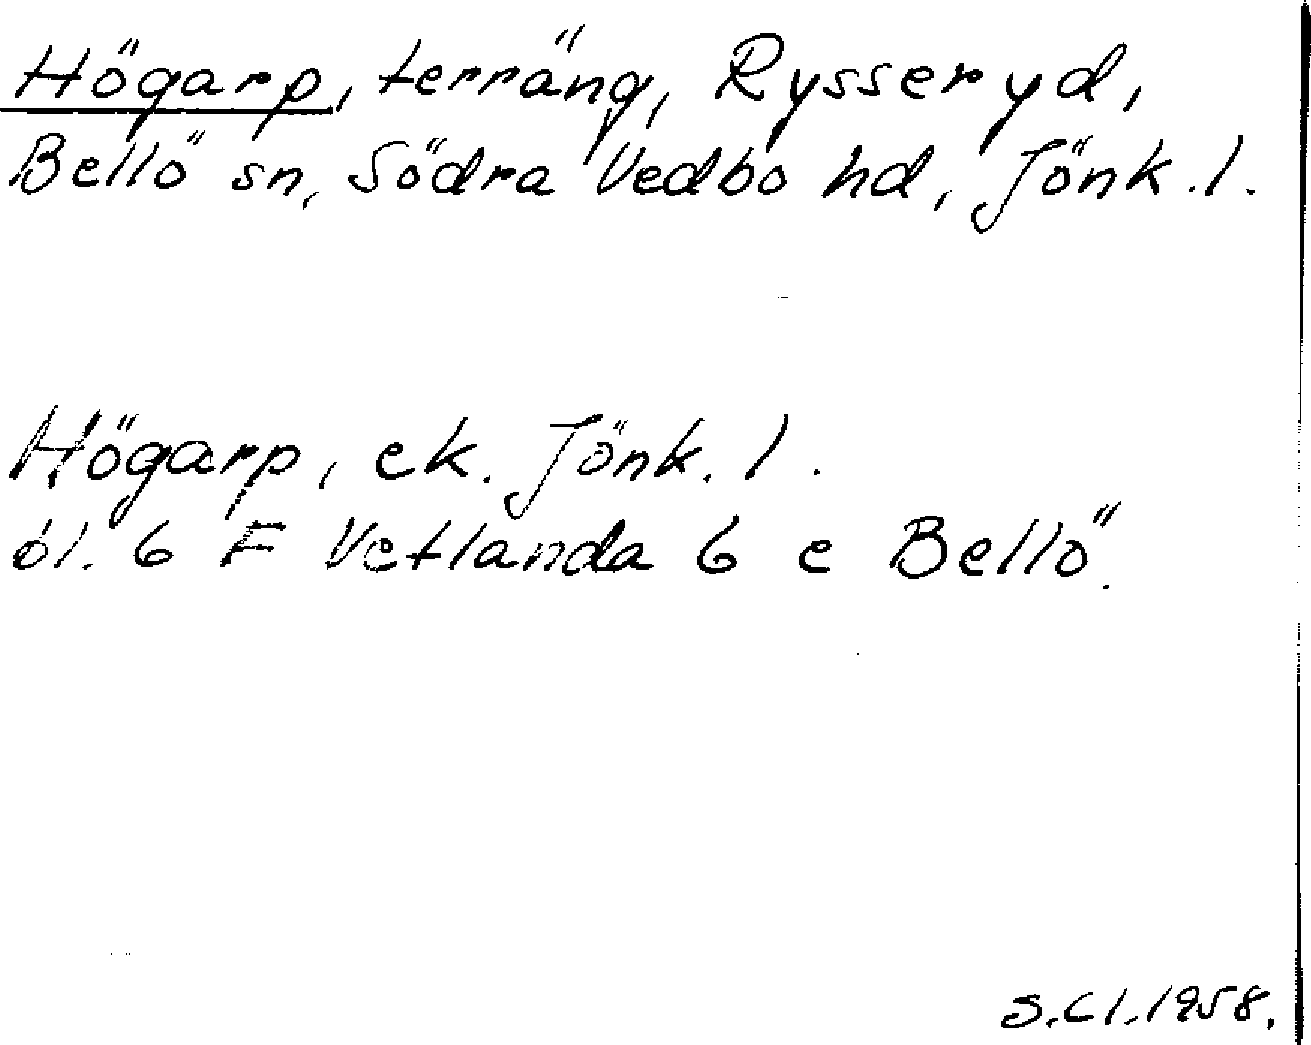 Högarp, terräng, Rysseryd,
Bellö sn, Södra Vedbo hd, Jönk. l.
Högarp, ek. Jönk. l.
bl. 6 F Vetlanda 6 e Bellö.
S.Cl.1958.